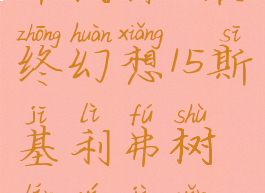 zhōng huàn xiǎng sī
终幻想15斯
jī lì fú shù
基利弗树